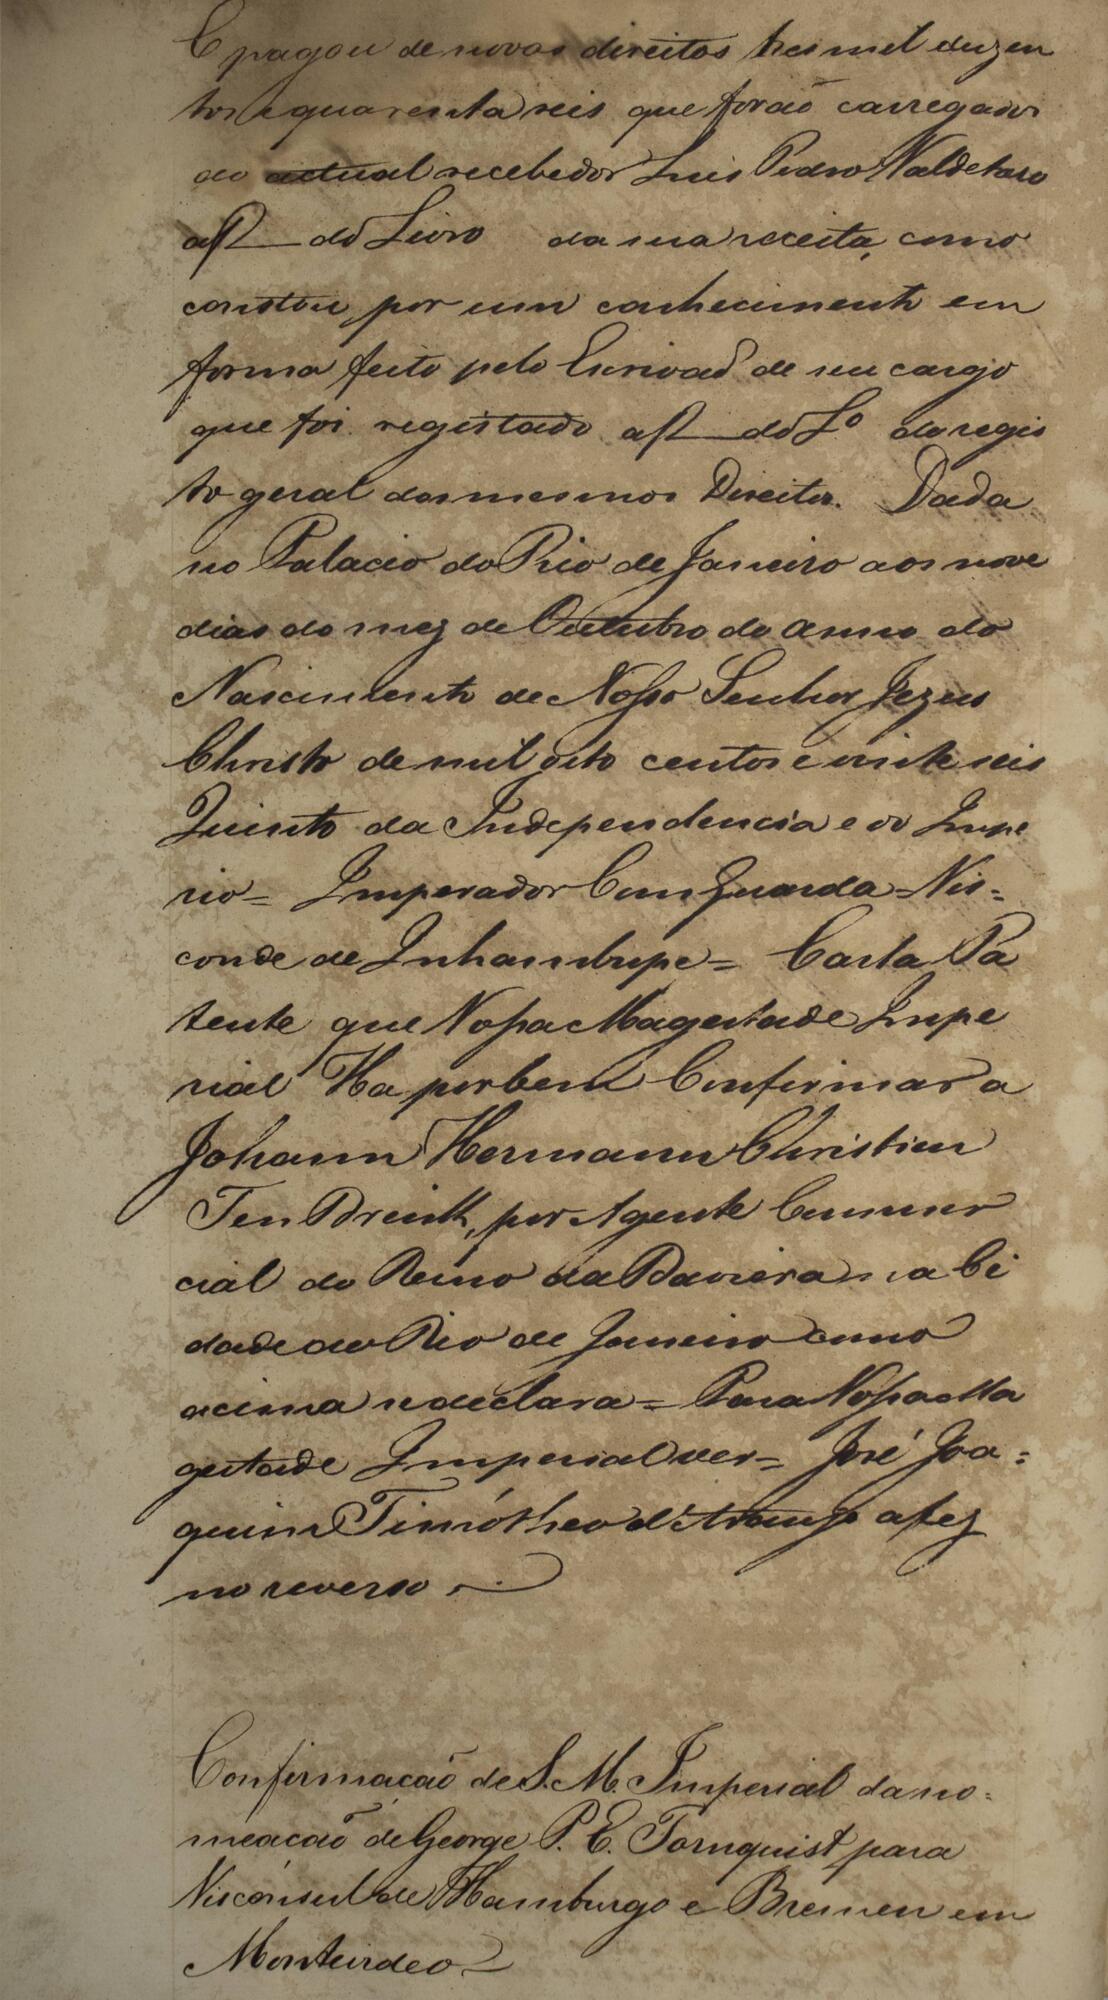 E pagou de novos direitos tres mil duzen
tos e quarenta reis que forão carregados
ao actual recebedor Luis Pedro Valdetaro
af do Livro da sua receita, como
constou por um conhecimento em
forma feito pelo Escrivaõ de seu cargo
que foi registado af do Lº do regis
to geral dos mesmos Direitos. Dada
no Palacio do Rio de Janeiro aos nove
dias do mez de Outubro do Anno do
Nascimento de Nosso Senhor Jezus
Christo de mil oito centos e vinte seis
Quinto da Independencia e do Impe
rio = Imperador Com Guarda = Vis=
conde de Inhambupe = Carta Pa
tente que Vossa Magestade Impe
rial Ha por bem Confirmar a
Johann Hermann Christian
Ten Brink, por Agente Commer
cial do Reino da Baviera na Ci
dade do Rio de Janeiro como
acima se declara = Para Vossa Ma
gestade Imperial ver = José Joa=
quim Timótheo d'Araujo a fez
no reverso
Confirmacaõ de S. M. Imperial da no=
meacaõ de George P. E. Tornquist para
Viscónsul de Hamburgo e Bremen em
Montevideo